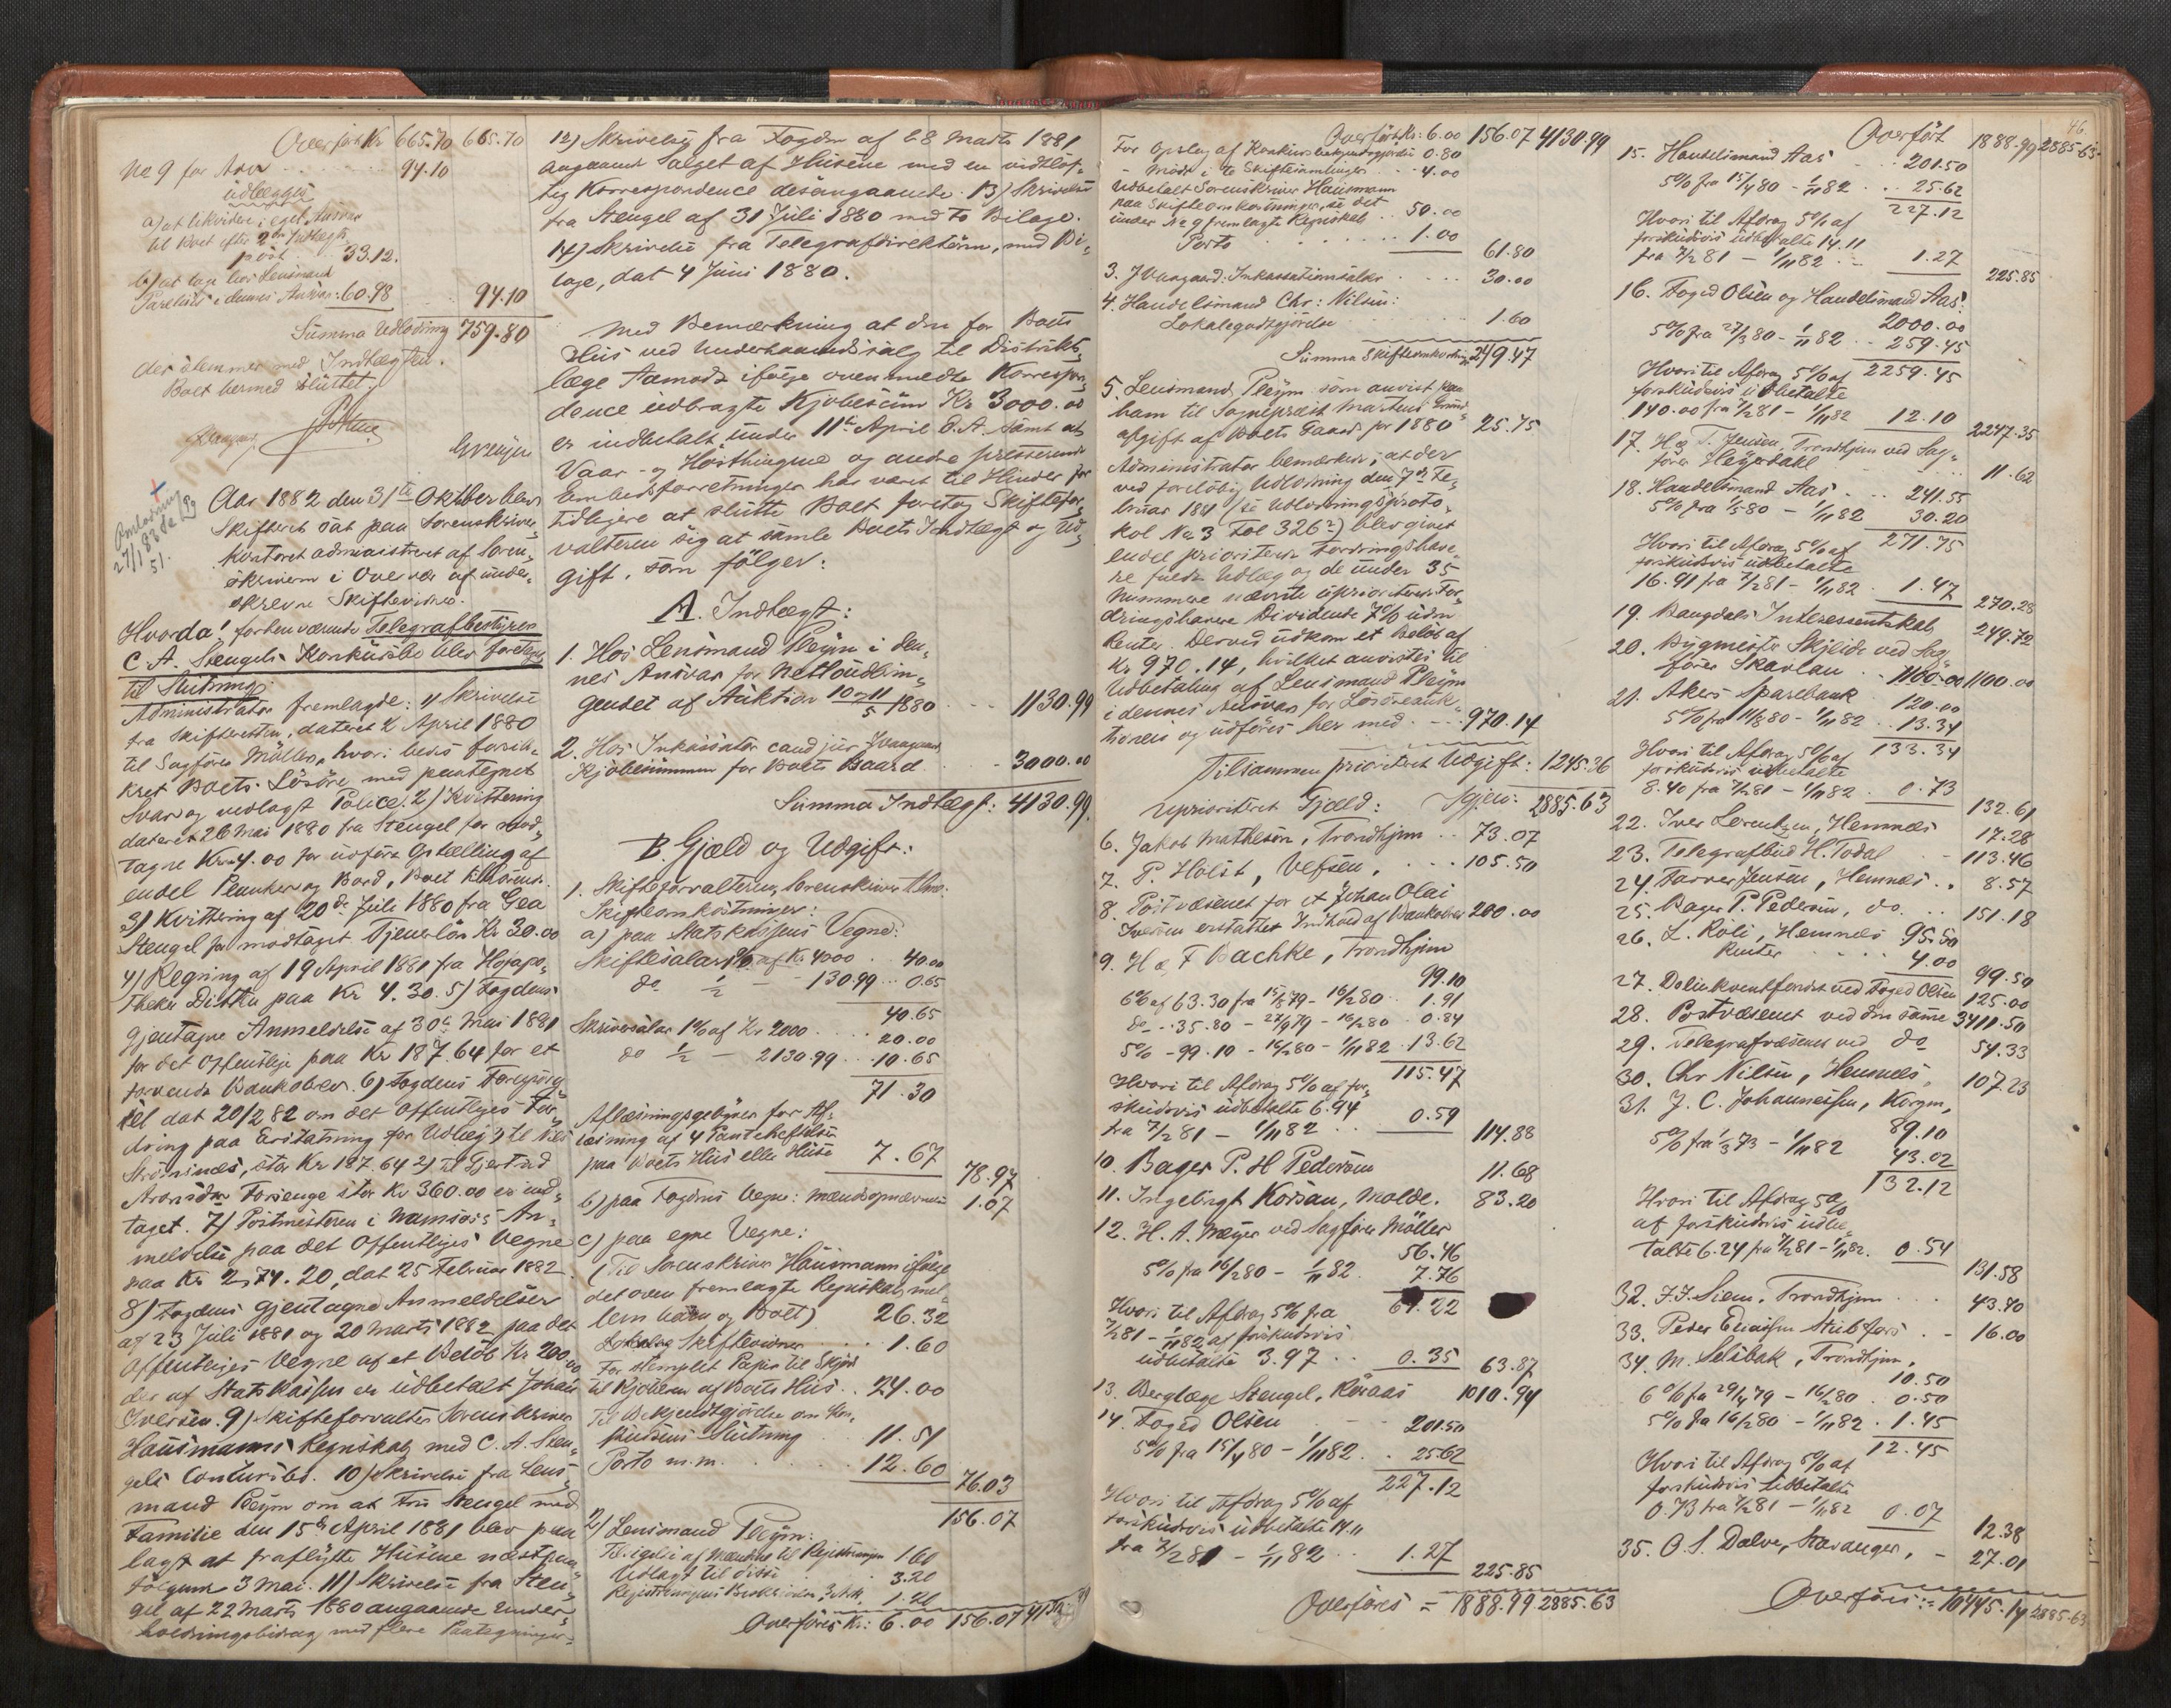 Overført Kr 665.70 665.70
No 9 for Arv . . . . . 94.10
udlægges
a) at likvidere i eget Ansvar
til Boet efter 2den Indtægts
post . . 33.12.
b) at tage hos Lensmand
i dennes Ansvar . 60.98
94.10
Summa Udlodning 759.80
der stemmer med Indtægten.
Boet hermed sluttet.
Aar 1882 den 31te Oktober blev
Skifteret sat paa Sorenskriver-
kontoret administreret af Soren-
skriveren i Overvær af under-
skrevne Skiftevidner.
Hvorda! forhenværende Telegrafbestyrer
C. A. Stengels Konkursbo blev foretaget
til Slutning.
Administrator fremlagde: 1) Skrivelse
fra Skifteretten, dateret 2 April 1880
til Sagfører Møller, hvori bedes forsik-
kret Boets Løsøre, med paategnet
Svar og vedlagt Police. 2) Kvittering
dateret 26 Mai 1880 fra Stengel for mod-
tagne Kr. 4.00 for udført Opstilling af
endel Planker og Bord, Boet tilhørende.
3) Kvittering af 20de Juli 1880 fra Gea
Stengel for modtaget Tjenerløn Kr 30.00
4) Regning af 19 April 1881 fra
paa Kr 4.30. 5) Fogdens
gjentagne Anmeldelse af 30te Mai 1881
for det Offentlige paa Kr 187.64 for et
Bankobrev. 6) Fogdens Forespørg-
sel dat 20/2 82 om det Offentliges For-
dring paa Erstatning for Udlæg 1) til Nils
stor Kr 187.64 2) til Gjertrud
Aronsdtr Forsenge stor Kr 360.00 er ind-
taget. 7) Postmesteren i Namsos's An-
meldelse paa det Offentliges Vegne
paa Kr 2,74.20, dat 25 Februar 1882.
8) Fogdens gjentagne Anmeldelser
af 23 Juli 1881 og 20 Marts 1882 paa det
Offentliges Vegne af et Beløb Kr 200.00
der af Statskassen er udbetalt Johan
Iversen. 9) Skifteforvalter Sorenskriver
Hausmanns Regnskab med C. A. Sten-
gels Concursbo. 10) Skrivelse fra Lens-
mand Pleym om at Fru Stengel med
Familie den 15de April 1881 blev paa-
lagt at fraflytte Husene næstpaa-
følgende 3 Mai. 11) Skrivelse fra Sten-
gel af 22 Marts 1880 angaaende Under-
holdningsbidrag med flere Paategninger.
12) Skrivelse fra Fogden af 28 Marts 1881
angaaende Salget af Husene med en vidtløf-
tig Korrespondence desangaaende. 13) Skrivelse
fra Stengel af 31 Juli 1880 med to Bilage.
14) Skrivelse fra Telegrafdirektøren, med Bi-
lage, dat 4 Juni 1880.
Med Bemærkning at den for Boets
Hus ved Underhaandssalg til Distrikts-
læge Aamodt ifølge ovenmeldte Korrespon-
dence udbragte Kjøbesum Kr 3000.00
er indbetalt under 11te April d. A. samt at
Vaar- og Høstthingene og andre presserende
Embedsforretninger har været til Hinder for
tidligere at slutte Boet foretog Skiftefor-
valteren sig at samle Boets Indtægt og Ud-
gift, som følger:
A. Indtægt:
1. Hos Lensmand Pleym i den-
nes Ansvar for Nettoudbrin-
gendet af Auktion 10 og 11/5 1880 . . . 1130.99
2. Hos Inkassator cand jur J Vaagaard
Kjøbesummen for Boets Gaard . . 3000.00
Summa Indtægt: 4130.99.
B. Gjæld og Udgift:
1. Skifteforvalteren, Sorenskriver
Skifteomkostninger:
a) paa Statskassens Vegne:
Skiftesalær 1% af Kr 4000 . 40.00
do ½ — 130.99 . . 0.65
40.65
Skriversalær 1% af Kr 2000 . . . 20.00
do ½ — 2130.99 . . . 10.65
71.30
Aflæsningsgebyrer for Af-
læsning af 4 Panteheftelser
paa Boets Hus eller Huse 7.67
78.97
b) paa Fogdens Vegne: Mændsopnævnelse 1.07
c) paa egne Vegne:
(Til Sorenskriver Hausmann ifølge
det oven fremlagte Regnskab mel-
lem ham og Boet) 26.32
Skiftevidner . . 1.60
For stemplet Papir til Skjøde
til Kjøberen af Boets Hus . . 24.00
Til Bekjendtgjørelse om Kon-
kursens Slutning . . 11.51
Porto m.m. . . . . 12.60
76.03
156.07
2) Lensmand Pleym:
af Mændene til Registreringen 1.60
Udlagt til disse . . 3.20
1.20
Overføres Kr.: 6.00 156.07
Overført Kr: 6.00 156.07 4130.99
For Opslag af Konkursbekjendtgjørelse 0.80
- Møde i 2 Skiftesamlinger . . . 4.00
Udbetalt Sorenskriver Hausmann
paa Skifteomkostninger, se det
under No 9 fremlagte Regnskab . . 50.00
Porto . . . . . . . 1.00
61.80
3. J Vaagaard: Inkassationssalær . . . 30.00
4. Handelsmand Chr: Nilsen:
Lokalegodtgjørelse . . . 1.60
Summa Skifteomkostninger 249.47
5. Lensmand Pleym som anvist paa
ham til Sogneprest Martens Grund-
afgift af Boets Gaard for 1880 25.75
Administrator bemærkede, at der
ved foreløbig Udlodning den 7de Fe-
bruar 1881 (se Udlodningsproto-
kol No 3 Fol 326) blev givet
endel prioriterede Fordringshave-
re fuldt Udlæg og de under 35
Nummere nævnte uprioriterede For-
dringshavere Dividende 7% uden
Renter. Derved udkom et Beløb af
Kr 970.14, hvilket anvistes til
Udbetaling af Lensmand Pleym
i dennes Ansvar for Løsøreauk-
tionen og udføres her med . - - 970.14
Tilsammen prioriteret Udgift: 1245.36
Uprioriteret Gjæld: Igjen: 2885.63
6. Jakob Matheson, Trondhjem . . 73.07
7. P. Holst, Vefsen, . . . 105.50
8. Postvæsenet for et Johan Olai
Iversen erstattet Indhold af Bankobrev 200.00
9. H & F Bachke, Trondhjem
99.10
6% af 63.30 fra 15/8 79 - 16/2 80 . . 1.91
do - . 35.80 - 27/9 79 - 16/2 80 . 0.84
5% - 99.10 - 16/2 80 - 1/11 82 . 13.62
115.47
Hvori til Afdrag 5% af for-
skudsvis udbetalte 6.94
fra 7/2 81 — 1/11 82 . . 0.59
114.88
10. Bager P. H Pedersen 11.68
11. Ingebrigt Korsan, Molde. 83.20
12. H. A. Meyer ved Sagfører Møller
56.46
5% fra 16/2 80 - 1/11 82. 7.76
64.22
Hvori til Afdrag 5% fra
7/2 81 - 1/11 82 af forskudsvis
udbetalte 3.97 . . 0.35 63.87
13. Berglæge Stengel, Røraas 1010.94
14. Foged Olsen . . . 201.50
5% fra 15/4 80 - 1/11 82 . . 25.62
227.12
Hvori til Afdrag 5% af
forskudsvis udbetalte 14.11
fra 7/2 81 - 1/11 82 . . 1.27
225.85
Overføres = 1888.99 2885.63
46.
Overført 1888.99 2885.63
15. Handelsmand Aas . . . 201.50
5% fra 15/4 80 - 1/11 82 . . 25.62
227.12
Hvori til Afdrag 5% af
forskudsvis udbetalte 14.11
fra 7/2 81 — 1/11 82 . - 1.27
225.85
16. Foged Olsen og Handelsmand Aas:
2000.00
5% fra 27/3 80 - 1/11 82 . . 259.45
2259.45
Hvori til Afdrag 5% af
forskudsvis udbetalte
140.00 fra 7/2 81 - 1/11 82 12.10
2247.35
17. H & T. Jensen, Trondhjem ved Sag-
fører Heyerdahl . . 11.62
18. Handelsmand Aas . . 241.55
5% fra 1/5 80 - 1/11 82 30.20
271.75
Hvori til Afdrag 5% af
forskudsvis udbetalte
16.91 fra 7/2 81 - 1/11 82 . 1.47
270.28
19. Bangdals Interessentskab 249.72
20. Bygmester Skjeide ved Sag-
fører Skavlan . . 1100.00 1100.00
21. Akers Sparebank 120.00
5% fra 11/8 80 - 1/11 82 . . 13.34
133.34
Hvori til Afdrag 5% af
forskudsvis udbetalte
8.40 fra 7/2 81 - 1/11 82 . 0.73
132.61
22. Iver Lorentzen, Hemnes 17.28
23. Telegrafbud H. Todal - 113.46
24. Farver Jensen, Hemnes . . 8.57
25. Bager P. Pedersen, do. . . 151.18
26. L. Roli, Hemnes 95.50
Renter . . . . 4.00
99.50
27. Delinkventfondet ved Foged Olsen 125.00
28. Postvæsenet ved den samme 3411.50
29. Telegrafvæsenet ved do 54.33
30. Chr Nilsen, Hemnes, 107.23
31. J. C. Johannessen, Korgen,
89.10
5% fra 1/3 73 - 1/11 82 43.02
132.12
Hvori til Afdrag 5%
af forskudsvis udbe-
talte 6.24 fra 7/2 81 - 1/11 82. 0.54
131.58
32. F. F. Siem, Trondhjem . . . 43.40
33. Peder Stubfors . - 16.00
34. M. Selsbak, Trondhjem,
10.50
6% fra 29/4 79 — 16/2 80 . 0.50
5% fra 16/2 80 - 1/11 82 . 1.45
12.45
Hvori til Afdrag 5% af
forskudsvis udbetalte
0.73 fra 7/2 81 - 1/11 82 0.07
12.38
35. O. S. Dalve, Stavanger, - 27.01
Overføres := 10445.14 2885.63